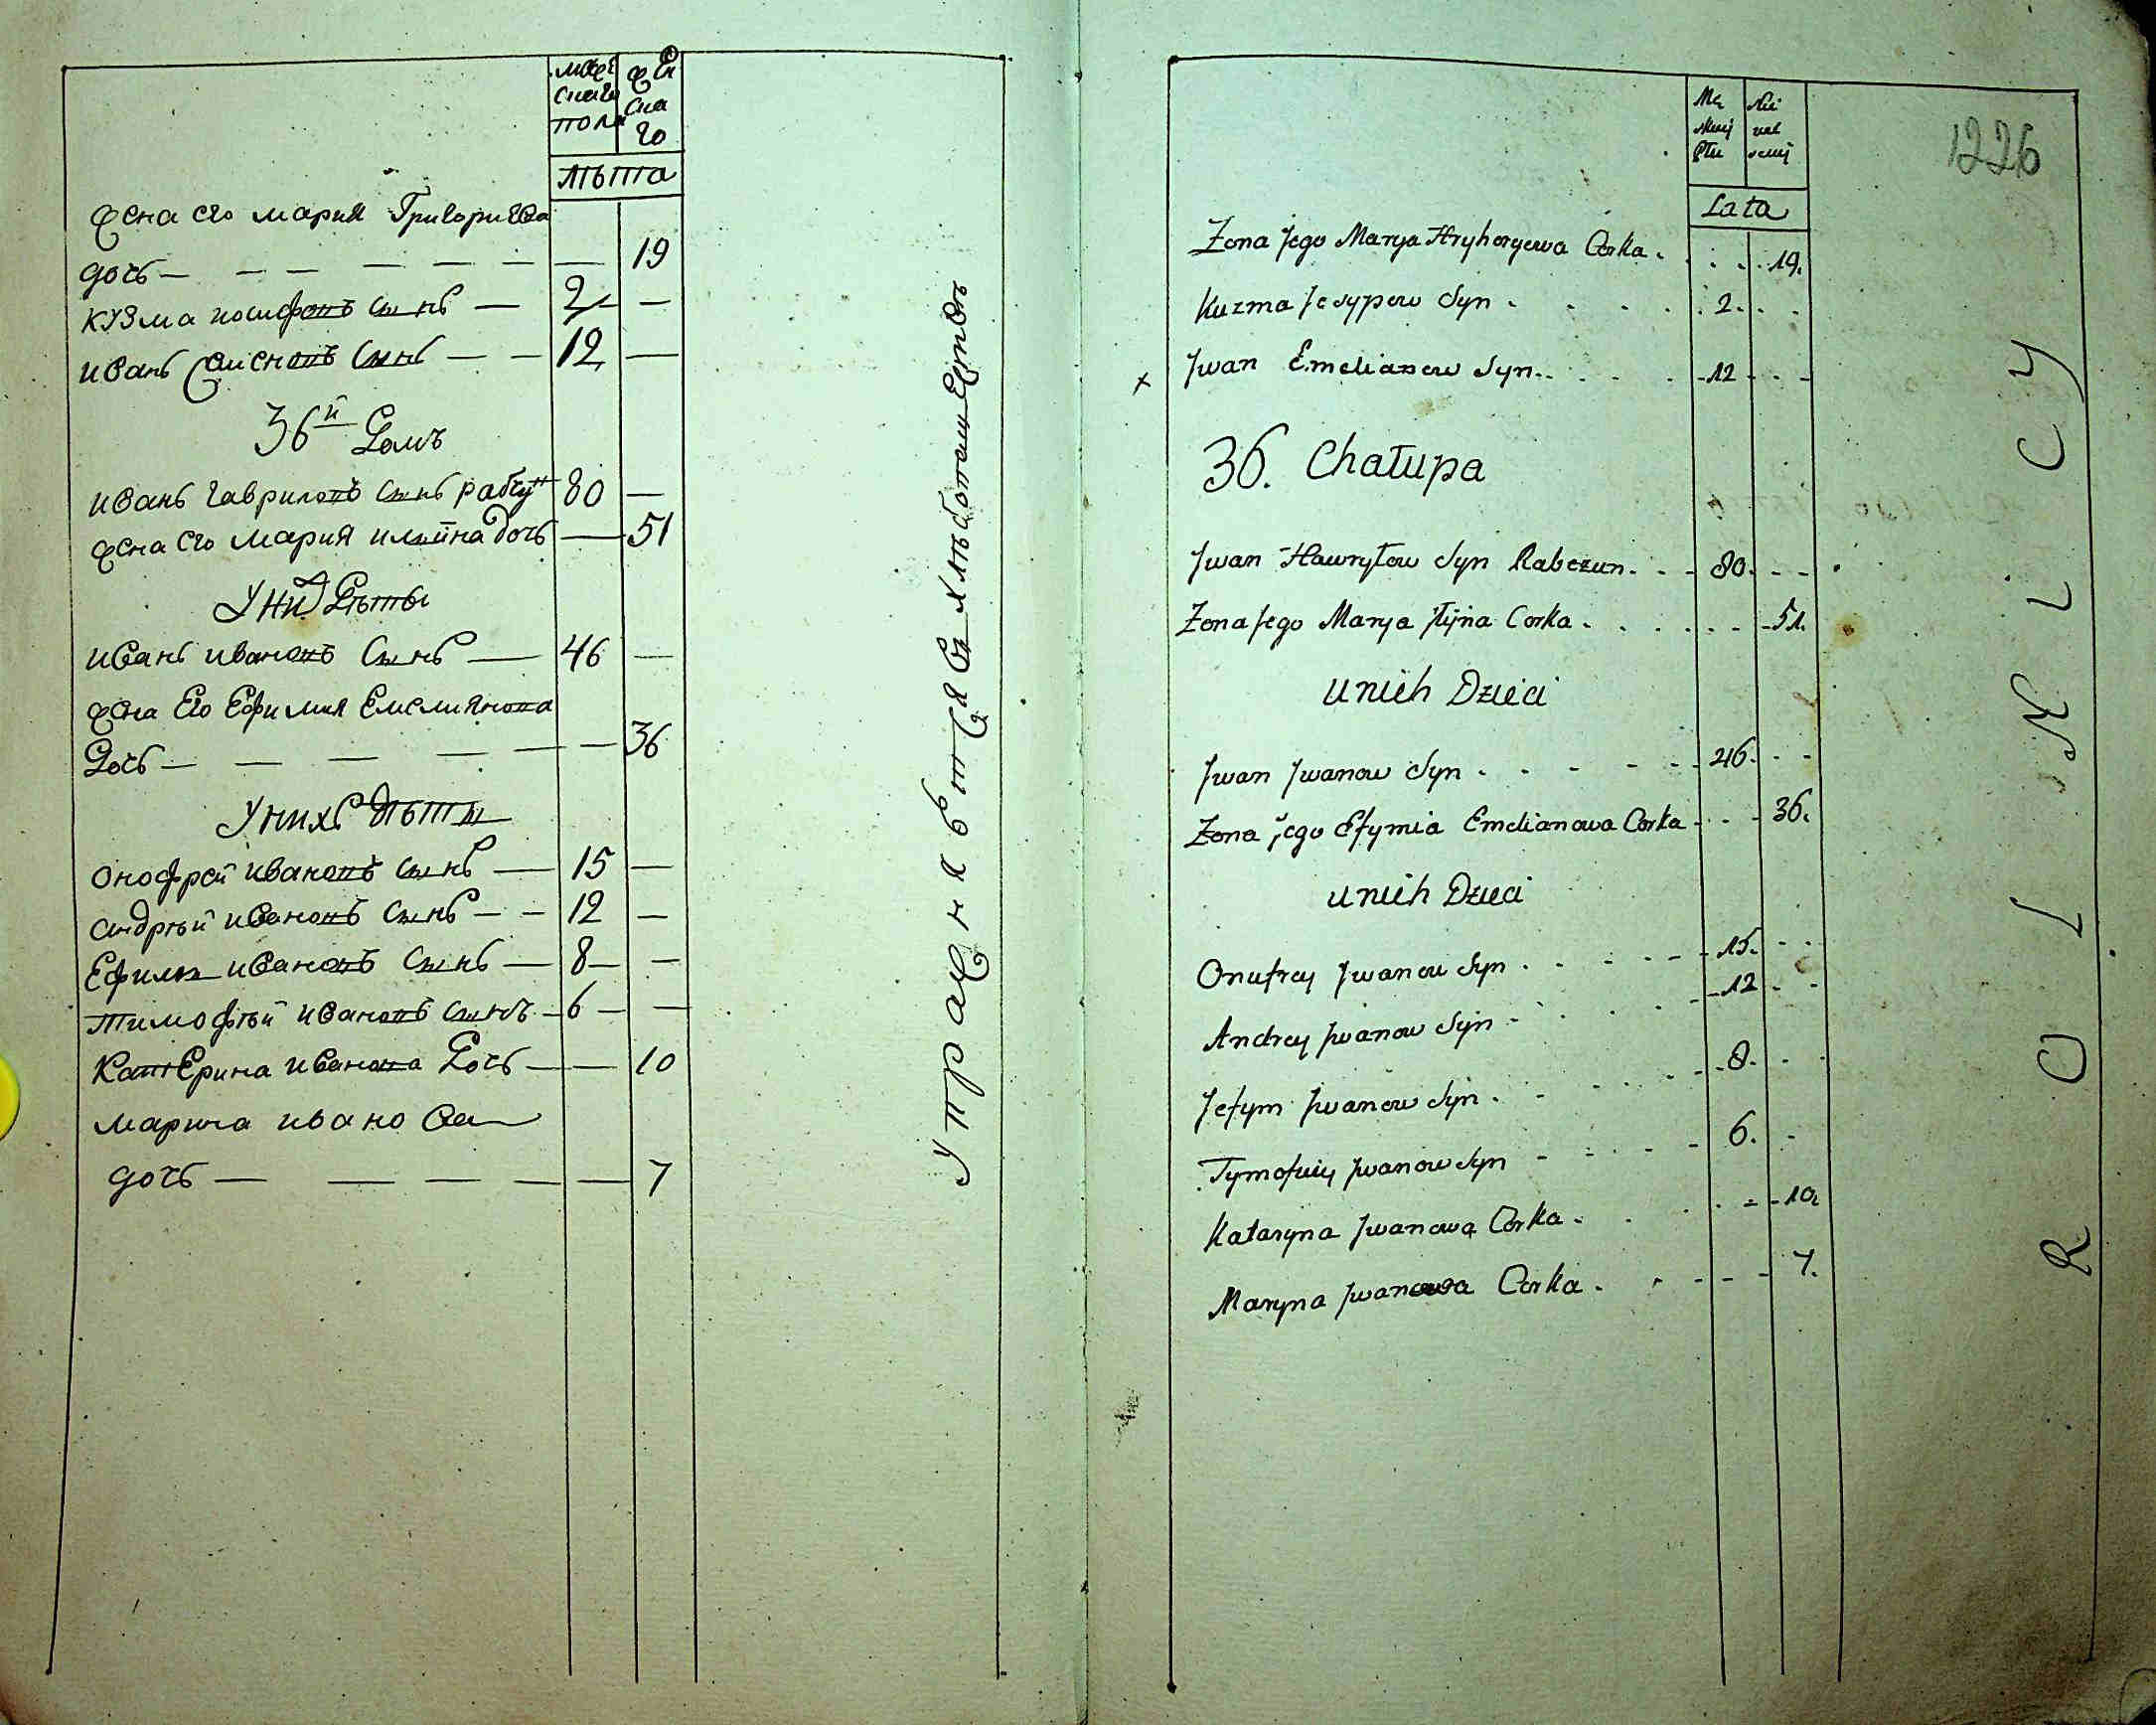 мужескаго пола
женскаго
лѣта
жена его мария Григориева
дочь — 19
кузма иосифовъ сынъ — 2 —
иванъ Емельяновъ сынъ — 12 —
36й Домъ
иванъ гавриловъ сынъ рабчун 80 —
жена его мария ильина дочь — 51
У них Дѣты
иванъ ивановъ сынъ — 46 —
жена Его Ефимия Емелиянова
Дочь — 36
У нихъ дѣты
онофрей ивановъ сынъ — 15 —
андрѣй ивановъ сынъ — 12 —
Ефимъ ивановъ сынъ — 8 —
тимофѣй ивановъ сынъ — 6 —
КатЕрина иванова Дочь — 10
марина иванова
дочь — 7
Упражняется въ хлѣбопашествѣ
Męskiej Płci
Niewieściej
Lata
1226
Żona Jego Marya Hryhoryewa Corka . 19.
Kuzma Josypow Syn . 2.
x Jwan Emelianow Syn . 12
36. Chałupa
Jwan Hawryłow Syn Rabczun . 80.
Żona Jego Marya Jlijna Corka . 51.
u nich Dzieci
Jwan Jwanow Syn . 46.
Żona jego Efymia Emelianowa Corka . 36.
u nich Dzieci
Onufrey Jwanow Syn . 15.
Andrey Jwanow Syn . 12
Jefym Jwanow Syn . 8.
Tymofiey Jwanow Syn . 6.
Kataryna Jwanowa Corka . 10.
Maryna Jwanowa Corka . 7.
ROLNICY